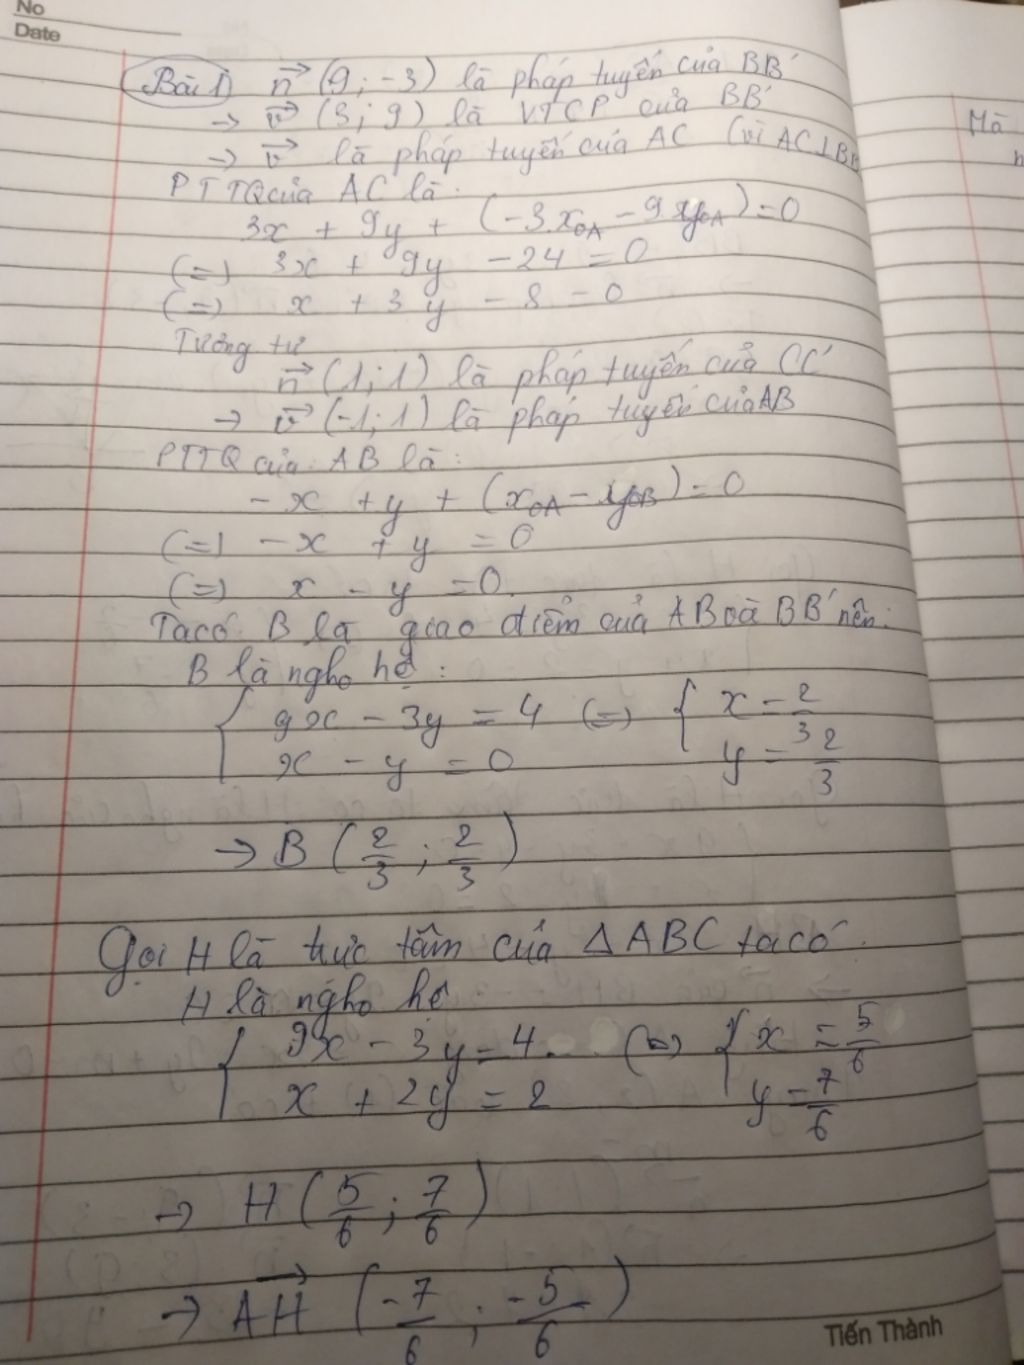 No
Date
Bài 1) n→ (9; -3) là pháp tuyến của BB'
→ v→ (3; 9) là VTCP của BB'
→ v→ là pháp tuyến của AC (vì AC⊥BB
PTTQ của AC là:
3x + 9y + (-3.xOA - 9 yOA) = 0
(=) 3x + 9y - 24 = 0
(=) x + 3y - 8 = 0
Tương tự
n→ (1; 1) là pháp tuyến của CC'
→ v→ (-1; 1) là pháp tuyến của AB
PTTQ của AB là:
-x + y + (xOA - yOB) = 0
(=) -x + y = 0
(=) x - y = 0.
Ta có B là giao điểm của AB và BB' nên:
B là ngho hệ:
{ 9x - 3y = 4 (=) { x = 2/3
x - y = 0 y = 2/3
→ B (2/3; 2/3)
Gọi H là trực tâm của ΔABC ta có
H là ngho hệ
{ 9x - 3y = 4 (=) { x = 5/6
x + 2y = 2 y = 7/6
→ H (5/6; 7/6)
→ AH→ (-7/6; -5/6)
Tiến Thành
Mà